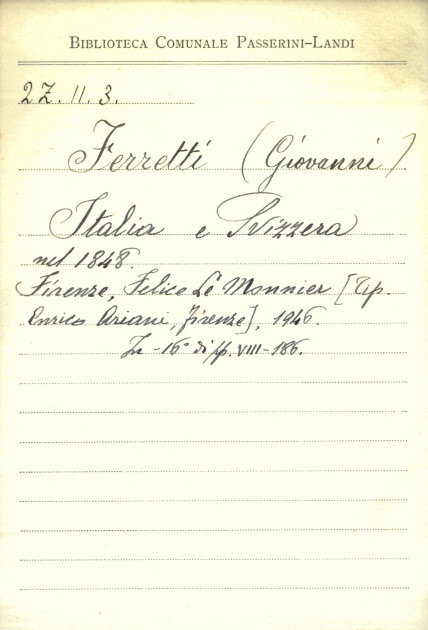 BIBLIOTECA COMUNALE PASSERINI-LANDI
2Z.11.3.
Ferretti (Giovanni)
Italia e Svizzera
nel 1848.
Firenze, Felice Le Monnier [Tip.
Enrico Ariani, Firenze], 1946.
In-16° di pp. VIII-186.